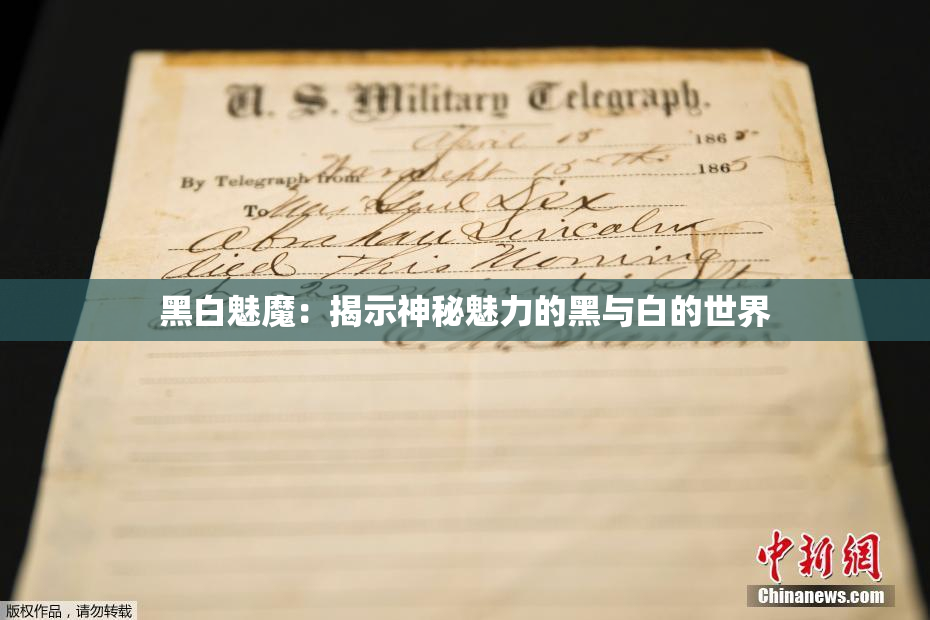 U. S. Military Telegraph.
April 15 1865
By Telegraph from War Dept 15th 1865
To Maj Genl Dix
Abraham Lincoln
died This Morning
22 minutes after
黑白魅魔：揭示神秘魅力的黑与白的世界
E. M. Stanton
中新网
Chinanews.com
版权作品，请勿转载